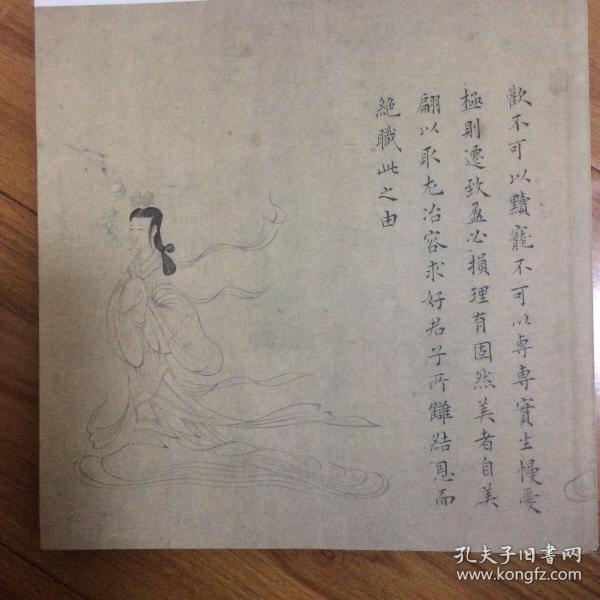 歡不可以黷寵不可以專專實生慢愛
極則遷致盈必損理有固然美者自美
翩以取尤冶容求好君子所讎結恩而
絶職此之由
孔夫子旧书网
www.kongfz.com